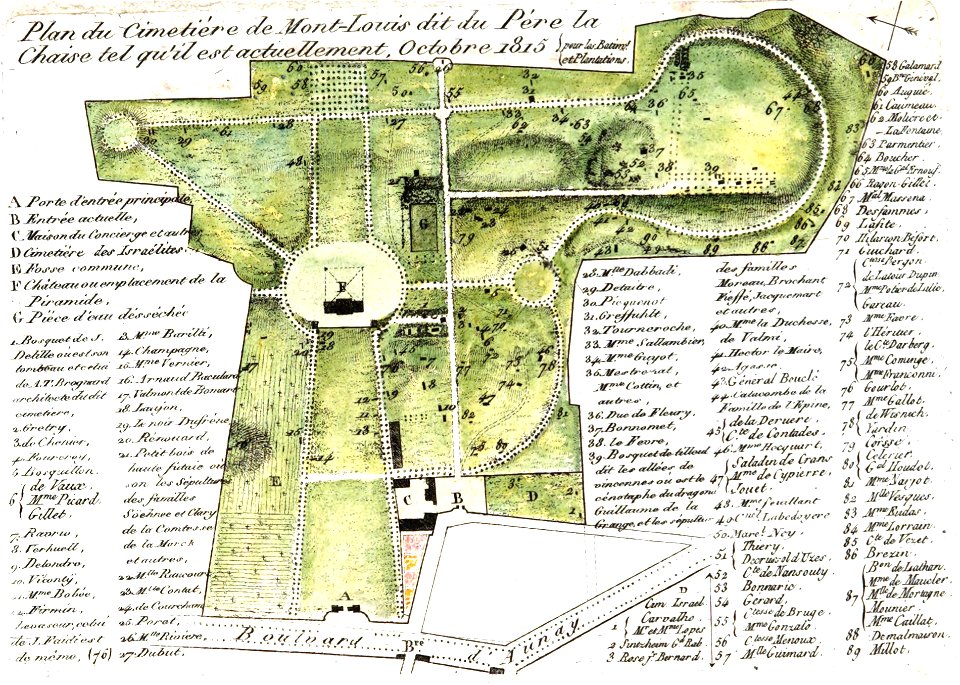 Plan du Cimetière de Mont-Louis dit du Père la
Chaise tel qu'il est actuellement, Octobre 1815 pour les Batimts
et Plantations.
A Porte d'entrée principale
B Entrée actuelle,
C Maison du Concierge et autres
D Cimetière des Israélites.
E Fosse commune,
F Château ou emplacement de la
Piramide,
G Pièce d'eau désséchée
1. Bosquet de J.
Delille ou est son
tombeau et celui
de A.T. Brognard
architecte du dit
cimetière,
2. Gretry,
3. de Chenier,
4. Fourcroy,
5. Bosquillon.
6 de Vaux.
Mme Picard
Gillet.
7. Ravrio,
8. Verhuell,
9. Delondre,
10. Viconty,
11. Mme Dobée,
12. Firmin,
Levasseur, celui
de J. Faidi est
de même, (76)
13. Mme Barilli
14. Champagne,
15. Mme Vernier,
16. Arnaud Baculard
17. Valmont de Bomare
18. Laujon,
19. Le noir Dufrêne
20. Rénouard,
21. Petit bois de
haute futaie ou
son les Sépultures
des familles
Soënee et Clary
de la Comtesse
de la Marck
et autres,
22. Mlle Raucour
23. Mlle Contat,
24. de Courchant
25. Poret,
26. Mlle Rivière,
27. Dubut.
28. Mlle Dabbadi,
29. Detaitre,
30. Picquenot
31. Greffuhlt,
32. Tourneroche,
33. Mme Sallambier,
34. Mme Guyot,
35. Mestrezat,
Mme Cottin, et
autres,
36. Duc de Fleury.
37. Bonnomet,
38. le Fevre,
39. Bosquet de tilleul
dit les allées de
vincennes ou est le
cénotaphe du dragon
Guillaume de la
Grange, et les sépultur
des familles
Moreau, Brochant
Pieffé, Jacquemart
et autres,
40. Mme la Duchesse,
de Valmi,
41. Hector le Maire,
42. Agasse
43. Général Bouclé
44. Catacombe de la
Famille de l'Epine,
45 de la Deruere,
Cte de Contades.
46. Mme Hocquart,
47 Saladin de Crans
Mme de Cypierre,
Jouet.
48. Mme fruillant
49. Cnel Labedoyere
50. Marel Ney,
51 Thiery,
d'Uzes,
52 Cte de Nansouty
53 Bonnaric
54 Gerard,
55 Ctesse de Bruge.
Mme Gonzalo,
56 Ctesse Menoux,
57 Mlle Guimard.
58 Galamard
59 Bne Généval,
60 Auguié.
61 Caumeau.
62 Moliere et
La Fontaine.
63 Parmentier,
64 Boucher.
65 Mme le Gal Ernouf,
66 Ragon-Gillet.
67 Mal Massena.
68 Desfammes,
69 Lafite.
70 Hilarion Béfort.
71 Guichard.
72 Ctesse Person.
de Latour Dupin
Mme Potier de Lulie,
Gareau.
73 Mme Favre.
74 l'Héritier.
75 le Cte Darberg,
Mme Cominge.
Mme Franconni,
76 Gourlot.
77 Mme Gallot
78 de Wisnich.
Yardin.
79 Corsse.
80 Celerier.
Gal Houdot,
81 Mme Sayot.
82 Mlle Vesques,
83 Mme Rudas,
84 Mme Lorrain.
85 Cte de Vezet.
86 Brezin.
87 Bon de Lathan.
Mme de Maucler
Mlle de Mortagne
Mounier
Mme Caillat.
88 Demalmaison.
89 Millot.
D
Cim. Israel.
1 Carvalho.
Mr et Mme Lopis
2 Sintzheim Gd Rab.
3 Rose f. Bernard.
Boulevard
Bre
d'Aunay
A
B
C
D
E
F
G